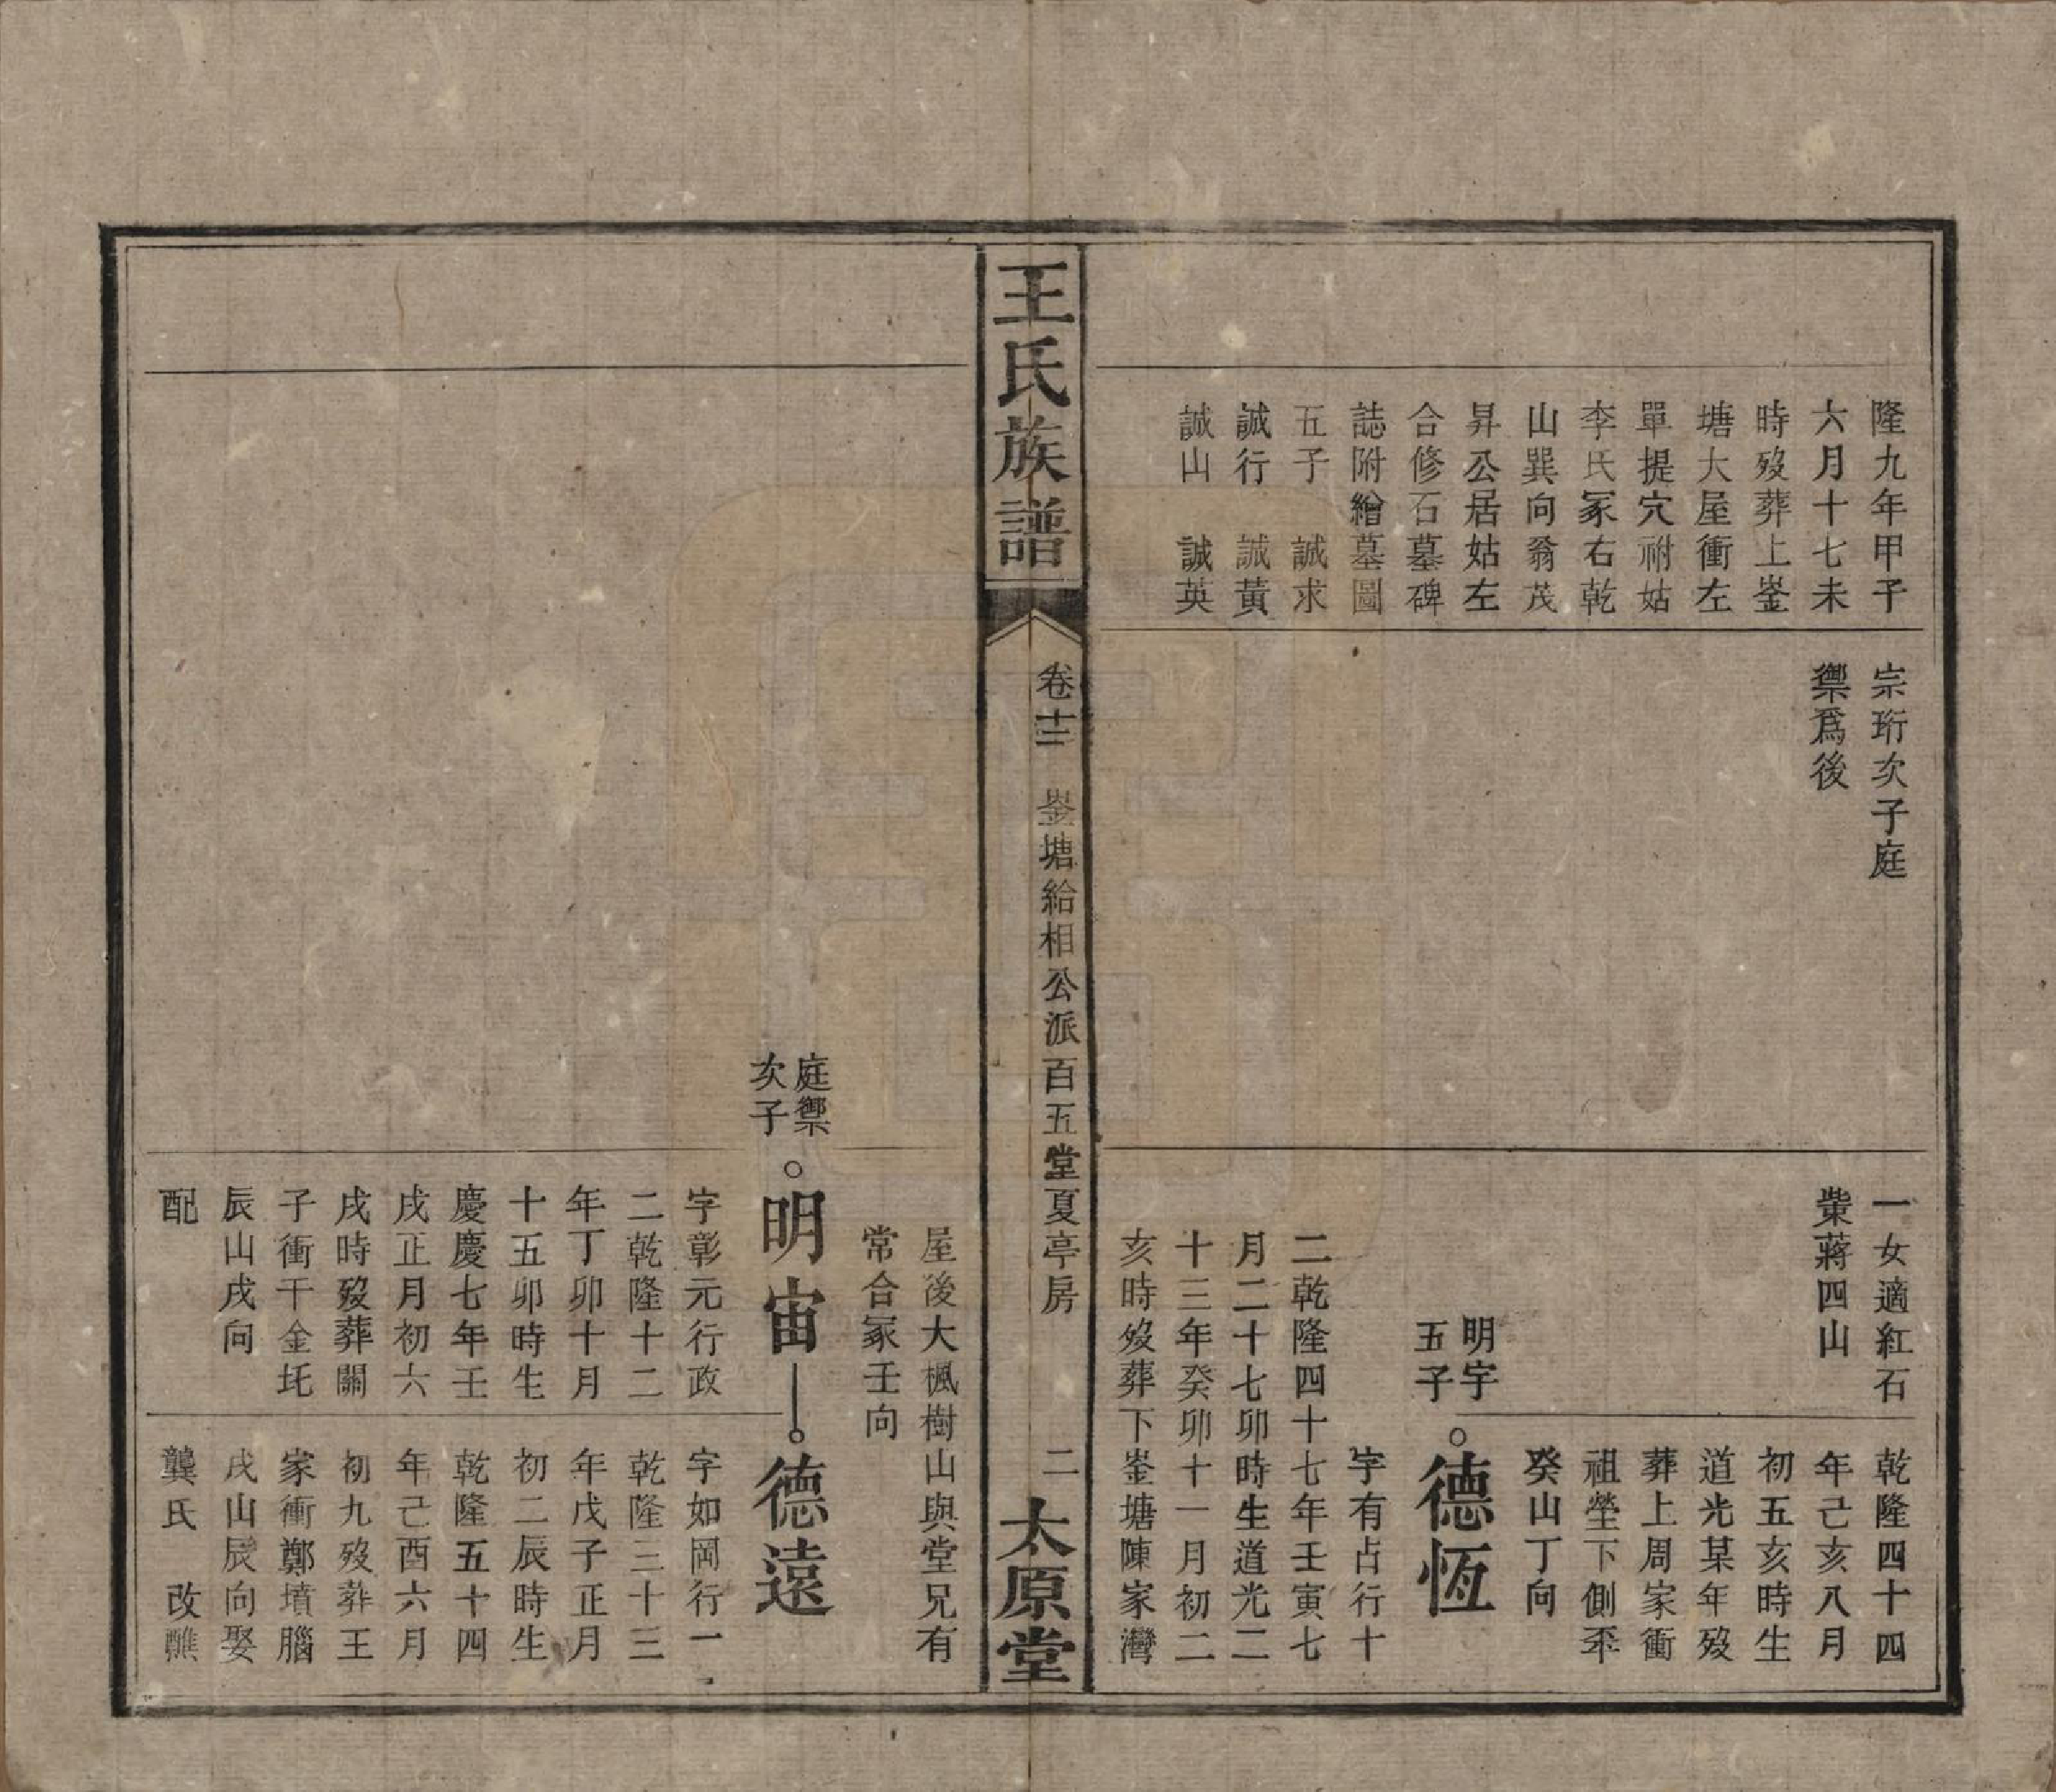 隆九年甲子
六月十七未
時歿葬上崟
塘大屋衝左
單提穴祔姑
李氏冢右乾
山巽向翁茂
昇公居姑左
合修石墓碑
誌附繪墓圖
五子　誠求
誠行　誠黃
誠山　誠英
宗珩次子庭
禦爲後
一女適紅石
柴蔣四山
乾隆四十四
年己亥八月
初五亥時生
道光某年歿
葬上周家衝
祖塋下側乑
癸山丁向
明宇
五子
德恆
字有占行十
二乾隆四十七年壬寅七
月二十七卯時生道光二
十三年癸卯十一月初二
亥時歿葬下崟塘陳家灣
王氏族譜
卷十三　崟塘給相公派百五堂夏亭房　二
太原堂
屋後大楓樹山與堂兄有
常合冢壬向
庭禦
次子
明宙
字彰元行政
二乾隆十二
年丁卯十月
十五卯時生
慶慶七年壬
戌正月初六
戌時歿葬關
子衝干金圫
辰山戌向
配
德遠
字如岡行一
乾隆三十三
年戊子正月
初二辰時生
乾隆五十四
年己酉六月
初九歿葬王
家衝鄭墳腦
戌山辰向娶
龔氏　改醮